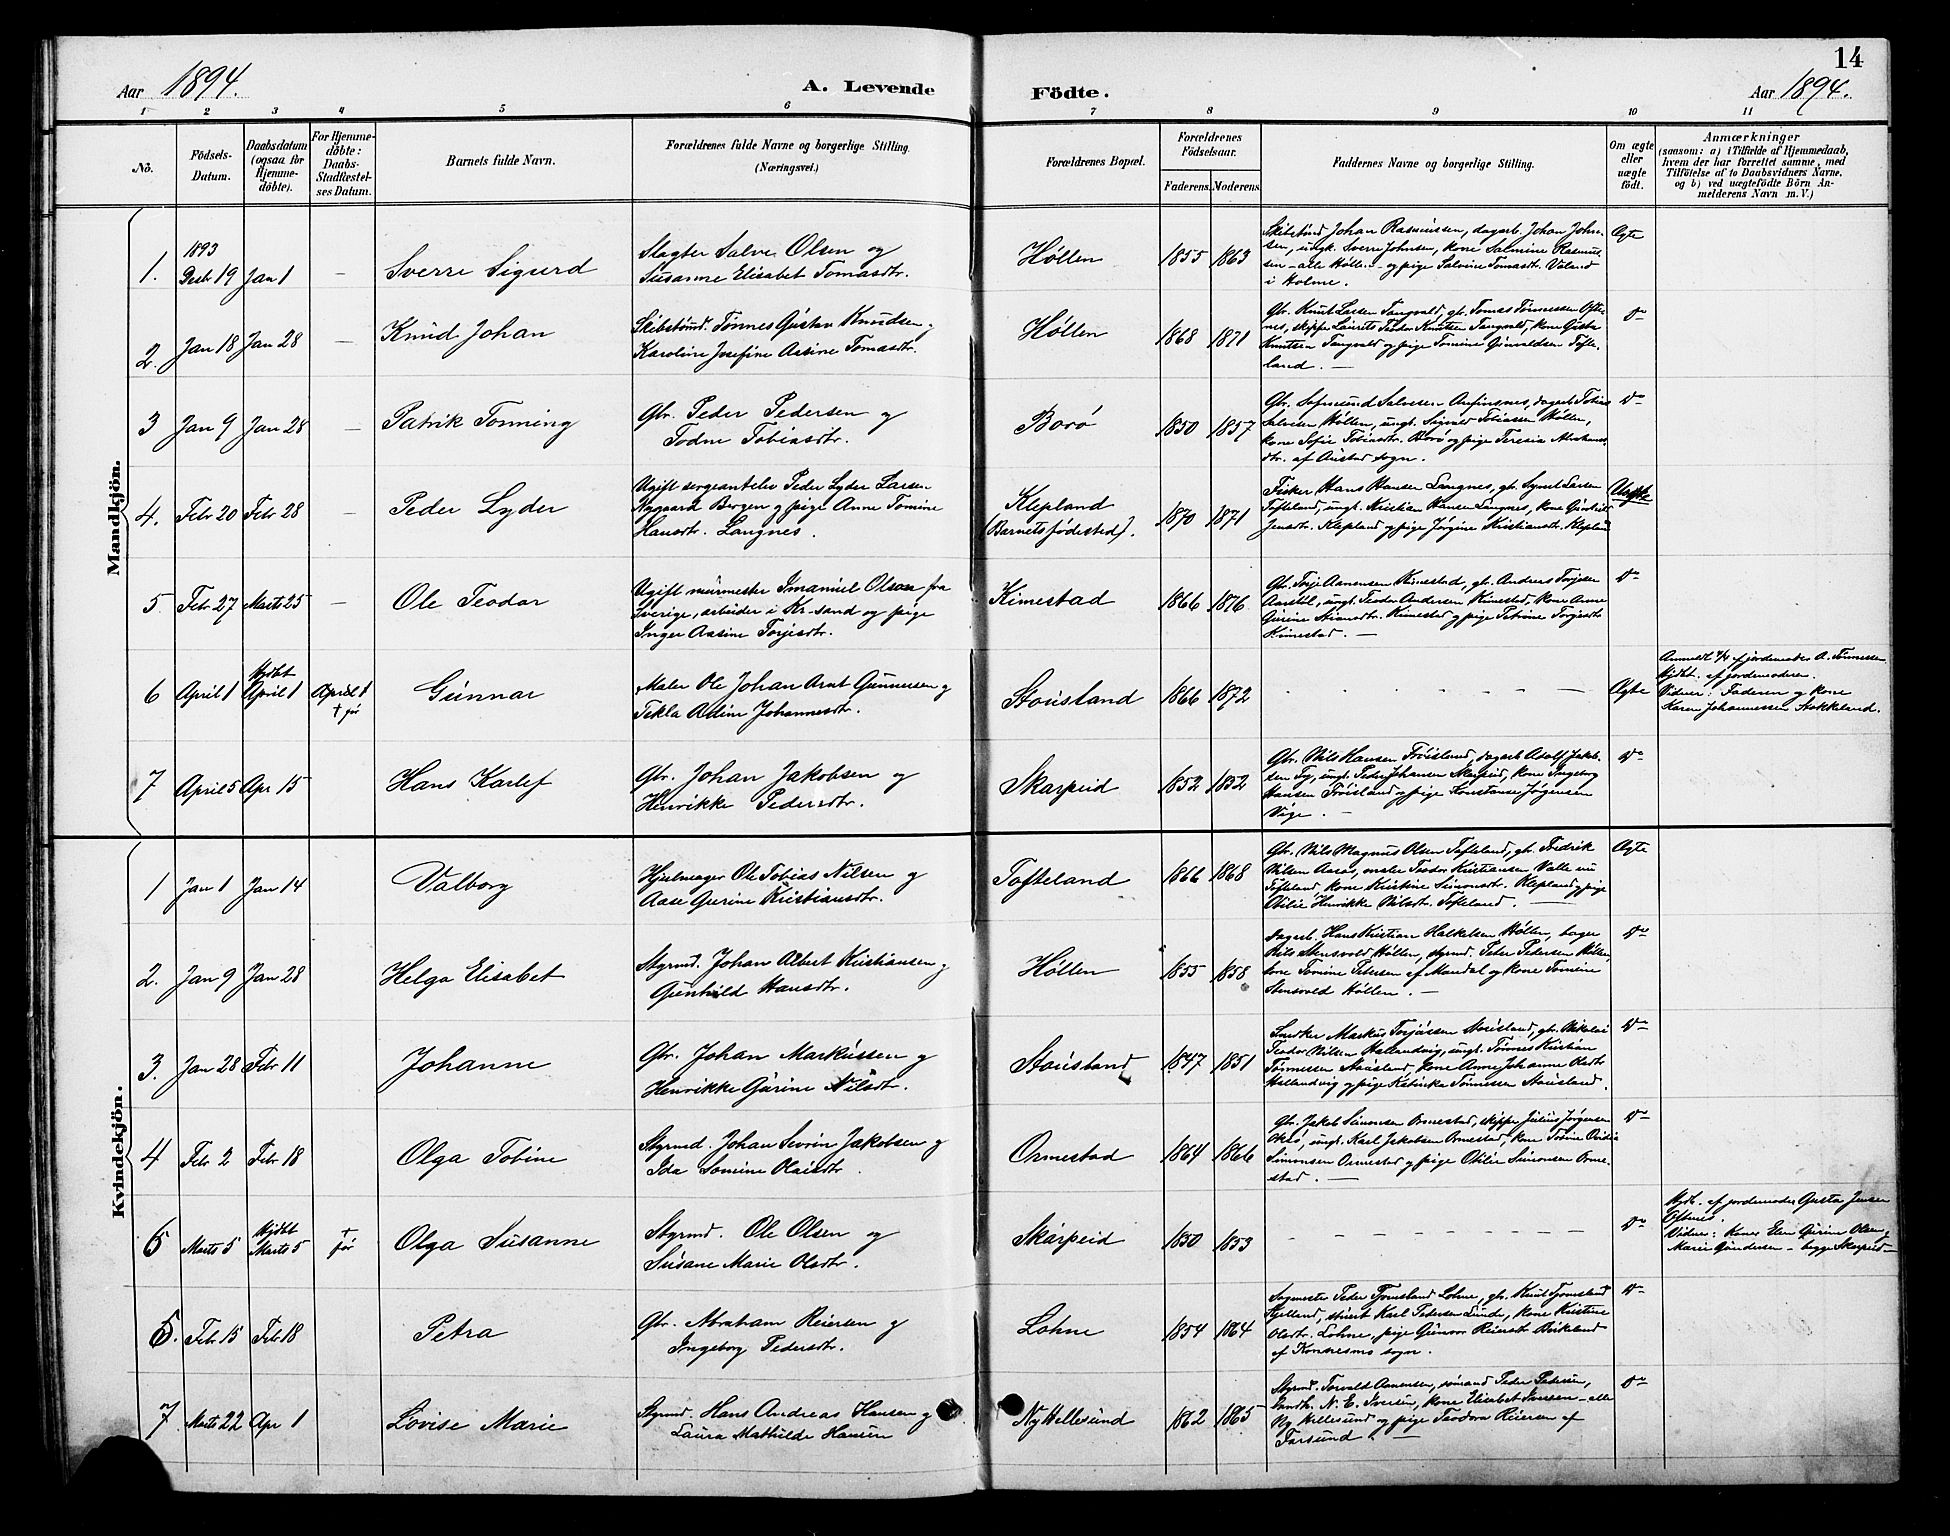 14
Aar 1894. A. Levende Födte. Aar 1894.
1 2 3 4 5 6 7 8 9 10 11
No.
Födsels-
Datum.
Daabsdatum
(ogsaa for
Hjemme-
döbte).
For Hjemme-
döbte:
Daabs-
Stadfæstel-
ses Datum.
Barnets fulde Navn.
Forældrenes fulde Navne og borgerlige Stilling.
(Næringsvei.)
Forældrenes Bopæl.
Forældrenes
Födselsaar.
Faderens. Moderens.
Faddernes Navne og borgerlige Stilling.
Om ægte
eller
uægte
födt.
Anmærkninger
(saasom: a) i Tilfælde af Hjemmedaab,
hvem der har forrettet samme, med
Tilföielse af to Daabsvidners Navne,
og b) ved uægtefödte Börn An-
melderens Navn m. V.)
Mandkjön.
1. 1893 Decbr 19 Jan 1 — Sverre Sigurd
Slagter Salve Olsen og
Susanne Elisabet Tomasdtr.
Høllen 1855 1863
Skibstmd Johan Rasmussen, dagarb. Johan John-
sen, ungk. Sverre Johnsen, kone Salmine Rasmus-
sen - alle Høllen - og pige Salvine Tomasdtr. Valand
i Holme.
Ægte
2. Jan 18 Jan 28 — Knud Johan
Skibstømd. Tønnes Gustav Knudsen og
Karoline Josefine Assine Tomasdtr.
Høllen 1868 1871
Gbr. Knut Larsen Tangvald, gb. Tomas Tønnessen Ofte-
nes, skipper Laurits Peder Knutsen Tangvald, kone Gusta
Knutsen Tangvald og pige Tomine Gunvaldsen Tofte-
land. —
Do
3 Jan 9 Jan 28 — Patrik Tønning
Gbr. Peder Pedersen og
Todne Tobiasdtr.
Borø 1850 1857
Gbr. Salvesen Anfinsnes, dagarb Tobias
Salvesen Høllen, ungk. Sigvald Tobiassen Høllen,
kone Sofie Tobiasdtr. Borø og pige Teresia Abrahams-
dtr. af Austad sogn.
Do
4. Febr 20 Febr 28 — Peder Lyder
Ugift sergeantelev Peder Lyder Larsen
Bergen og pige Anne Tomine
Hansdtr. Langnes.
Klepland
(Barnets fødested). 1870 1871
Fisker Hans Hansen Langnes, gb. Syvert Larsen
Tofteland, ungk. Kristian Hansen Langnes, kone Gunhild
Jensdtr. Klepland og pige Jørgine Kristiansdtr. Klepland
Uægte
5. Febr 27 Marts 25 — Ole Teodor
Ugift murmester Imanuel Olsson fra
Sverige, arbeider i Kr.sand og pige
Inger Assine Torjesdtr.
Kimestad 1866 1876
Gbr. Torje Aanensen Kimestad, gb. Andreas Torjesen
Aarstøl, ungk. Teodor Andersen Kimestad, kone Anne
Gurine Kimestad og pige Petrine Torjesdtr
Kimestad. —
Do
6 April 1 Hjdbt April 1 April 1 † før Gunnar
Maler Ole Johan Arnt Gunnersen og
Tekla Adine Johannesdtr.
Stousland 1866 1872
- - - - - -
Ægte
Anmeldt af jordemoder A. Tønnessen
Hjdbt. af jordemoderen.
Vidner: Faderen og kone
Karen Johannessen Stokkeland.
7 April 5 Apr 15 Hans Karlef
Gbr. Johan Jakobsen og
Henrikke Pedersdtr.
Skarpeid 1852 1852
Gbr. Nils Hansen Frøisland, dagarb Adolf Jakob-
sen Ty, ungk. Peder Johansen Skarpeid, kone Ingeborg
Hansen Frøisland og pige Konstanse Jørgensen
Vige. —
Do
Kvindekjön.
1 Jan 1 Jan 14 Valborg
Hjulmager Ole Tobias Nilsen og
Aase Gurine Kristiansdtr.
Tofteland 1866 1868
Gbr. Nils Magnus Olsen Tofteland, gb. Fredrik
Nilsen Aaros, maler Teodor Kristiansen Valle nu
Tofteland, kone Kristine Simonsdtr. Klepland og pige
Otilie Henrikke Nilsdtr. Tofteland. —
Ægte
2. Jan 9 Jan 28 Helga Elisabet
Styrmd. Johan Albert Kristiansen og
Gunhild Hansdtr.
Høllen 1855 1858
Dagarb. Hans Kristian Halkelsen Høllen, bager
Nils Stensvold Høllen, styrmd. Peter Petersen Høllen
kone Tomine Petersen af Mandal og kone Tomine
Stensvold Høllen. —
Do
3. Jan 28 Febr 11 Johanne
Gbr. Johan Markussen og
Henrikke Gurine Nilsdtr.
Stousland 1847 1851
Snedker Markus Torjussen Stousland, gb. Nikolai
Teodor Nilsen Hallandvig, ungk. Tønnes Kristian
Tønnessen Stousland, kone Anne Johanne Olsdtr
Hallandvig og pige Katinka Tønnessen Stousland.
Do
4 Febr 2 Febr 18 Olga Tobine
Styrmd. Johan Severin Jakobsen og
Ida Tomine Olaisdtr.
Ormestad 1864 1866
Gbr. Jakob Simonsen Ormestad, skipper Julius Jørgensen
Okse, ungk. Karl Jakobsen Ormestad, kone Tomine Ovidia
Simonsen Ormestad og pige Otilie Simonsen Orme-
stad. —
Do
6 Marts 5 Hjdbt Marts 5 † før Olga Susanne
Styrmd. Ole Olsen og
Susane Marie Olsdtr.
Skarpeid 1850 1853
- - - - - -
Do
Hjdb. af jordemoder Gusta Jensen
Oftenes.
Vidner: koner Elen Gurine Olsen og
Marie Gundersen - begge Skarpeid -
5. Febr 15 Febr 18 Petra
Gbr. Abraham Reiersen og
Ingeborg Pedersdtr.
Lohne 1854 1864
Sogneprest Peder Tjomsland Lohne, gb. Knut Tjomsland
Kjelland, Karl Pedersen Lunde, kone Kristine
Olsdtr. Lohne, pige Gunvor Reiersdtr Birkeland
af Konsmo sogn.
Do
7 Marts 22 Apr 1 Lovise Marie
Styrmd. Hans Andreas Hansen og
Laura Mathilde Hansen
Ny Hellesund 1862 1865
Styrmd. Torvald Aanensen, sømand Peder Pedersen,
handl. N. E. Iversen, kone Elisabet Hansen - alle
Ny Hellesund og pige Teodora Reiersen af
Farsund. —
Do